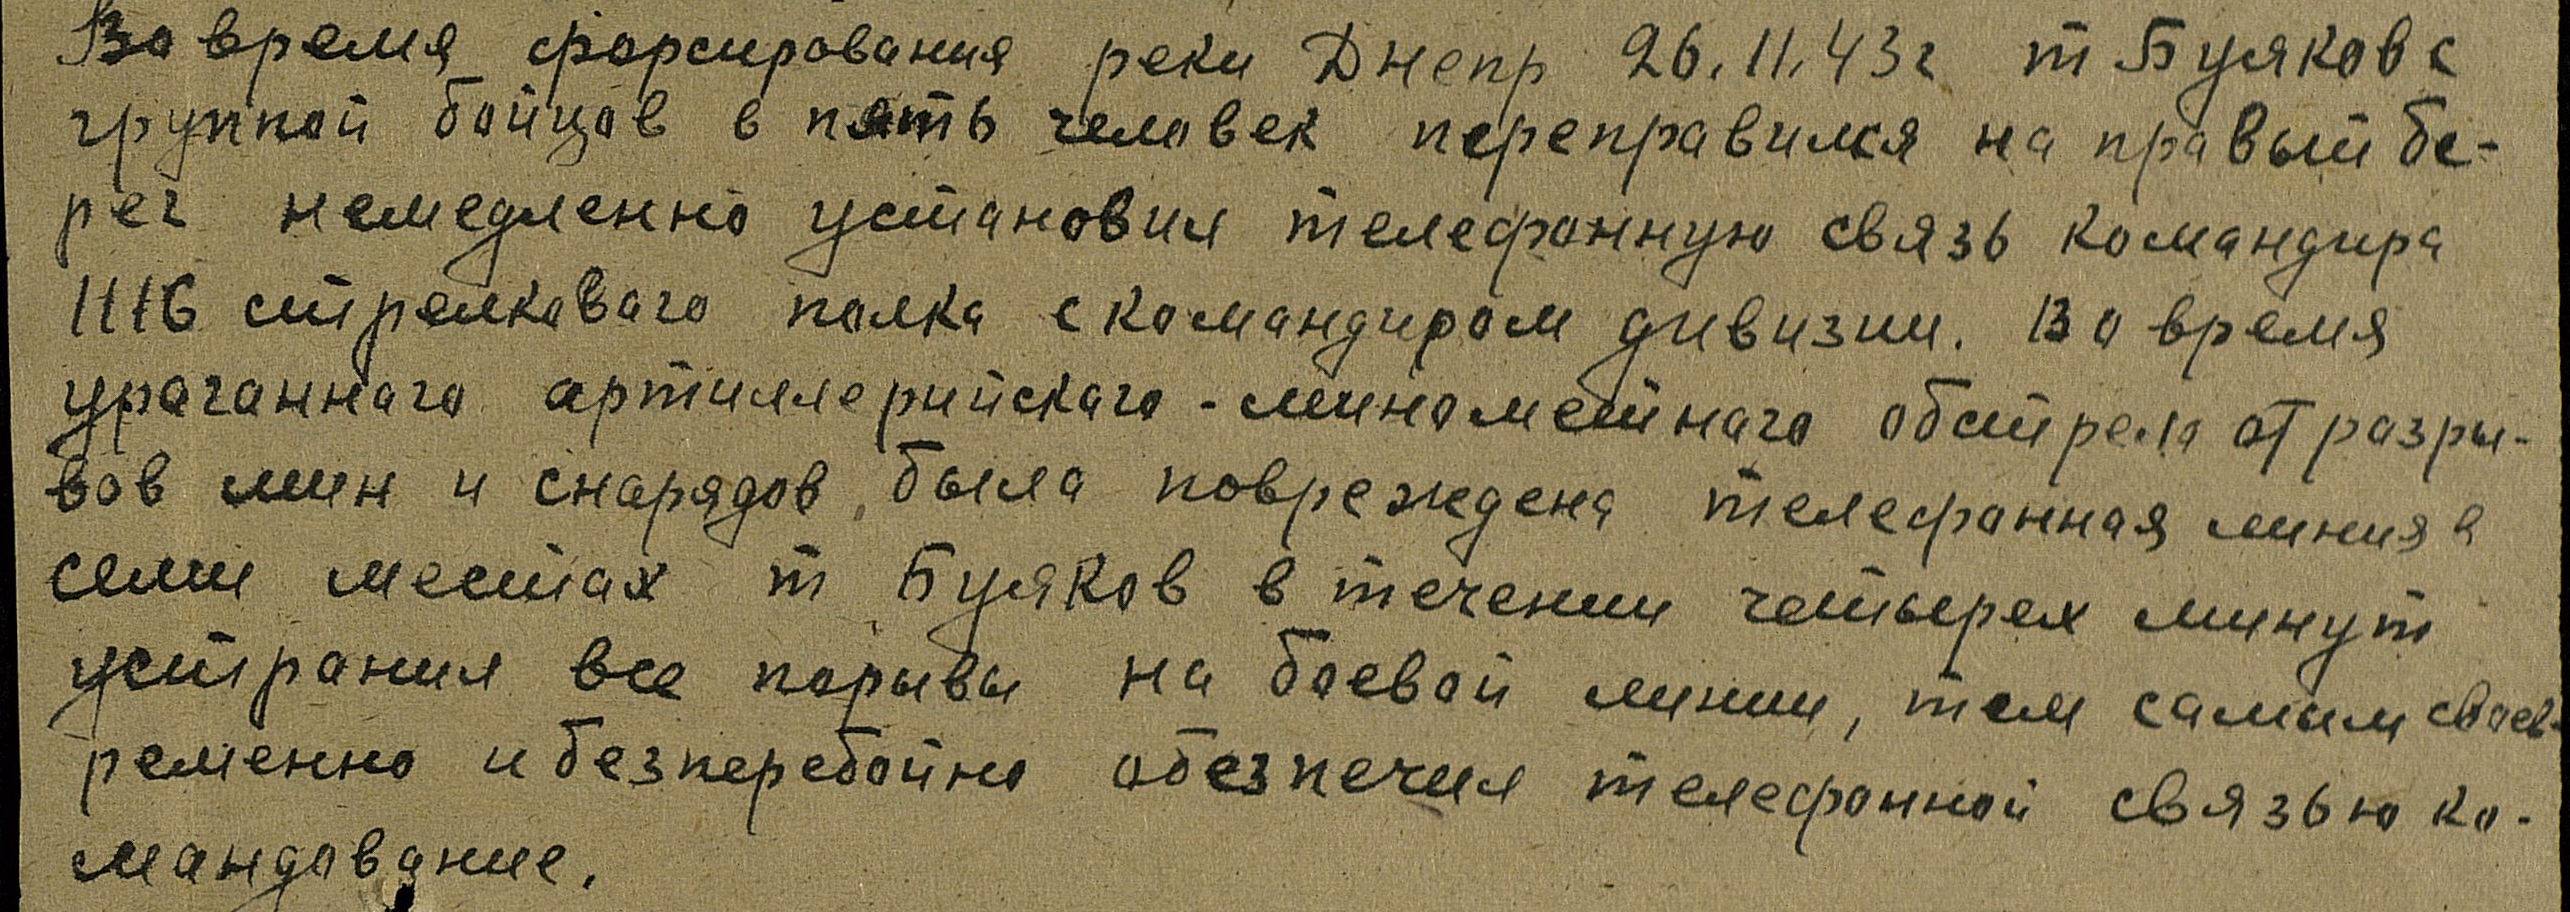 Во время форсирования реки Днепр 26.11.43г т Буяков с
группой бойцов в пять человек переправился на правый бе-
рег немедленно установил телефонную связь командира
1116 стрелковаго полка с командиром дивизии. Во время
ураганнаго артиллерийскаго - минометнаго обстрела от разры-
вов мин и снарядов была повреждена телефонная линия в
семи местах т Буяков в течении четырех минут
устранил все порывы на боевой линии, тем самым своев-
ременно и безперебойно обезпечил телефонной связью ко-
мандование.